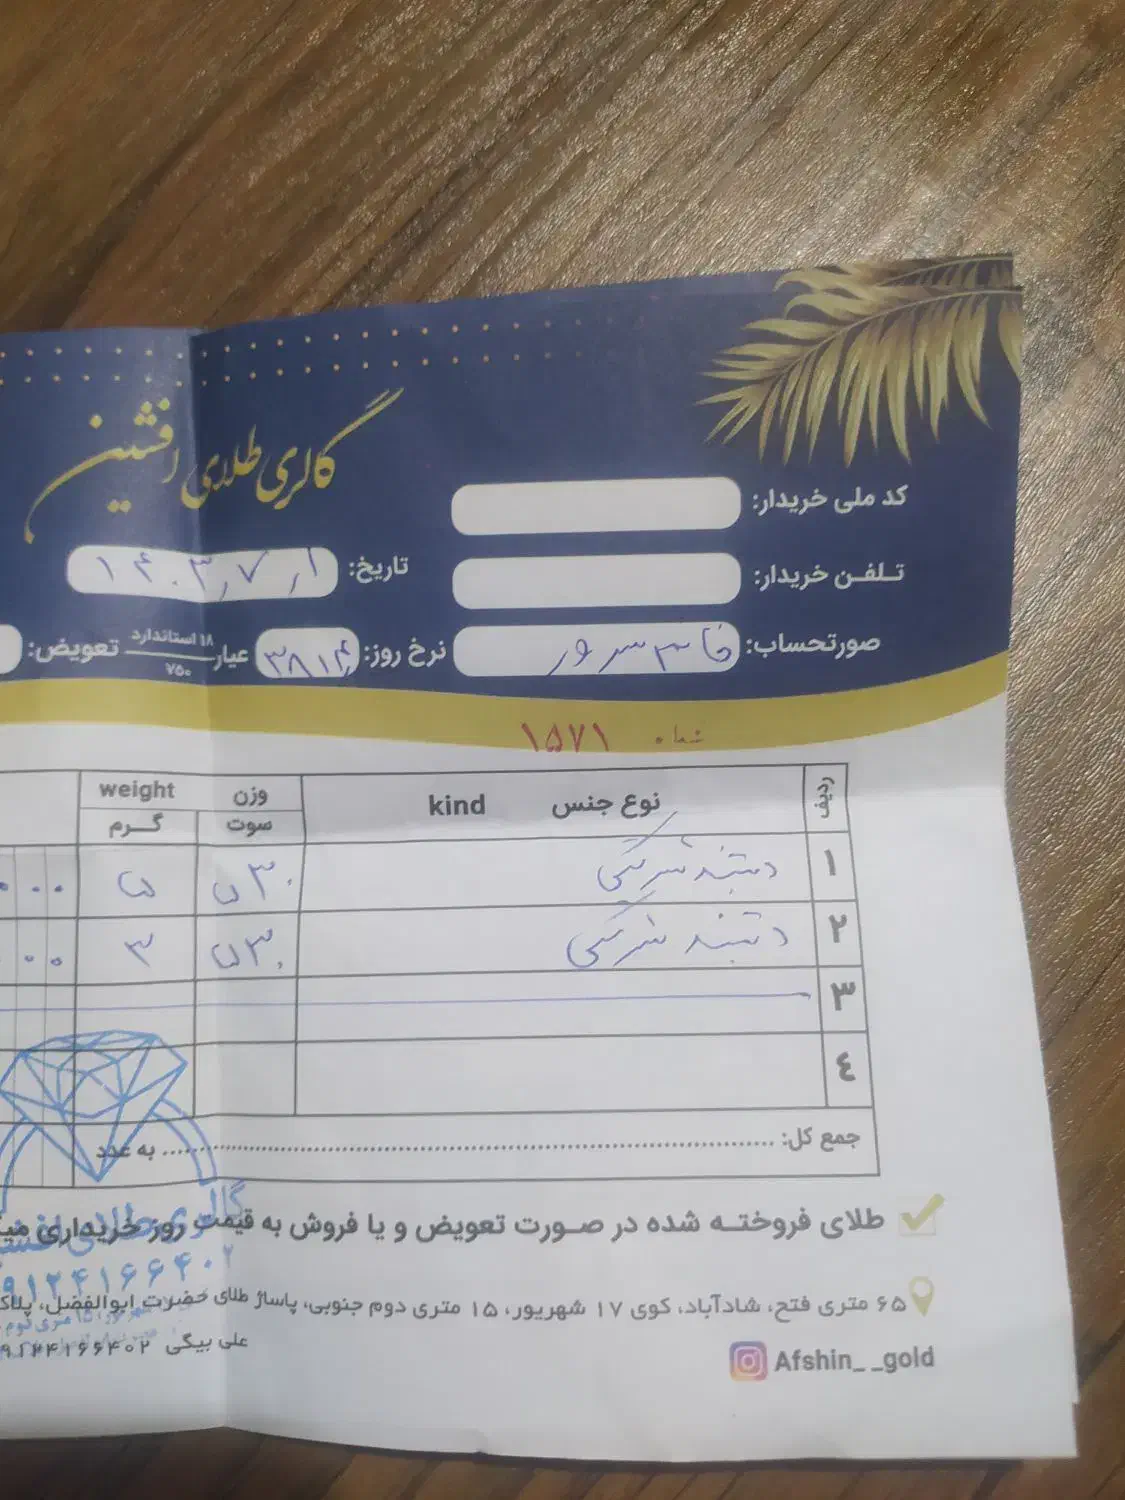 گالری طلای افشین
کد ملی خریدار:
تلفن خریدار:
تاریخ: ۱۴۰۳٫۷٫۱
صورتحساب:
نرخ روز: ۳۸۱۴
عیار ۱۸ استاندارد ۷۵۰
تعویض:
شماره ۱۵۷۱
ردیف نوع جنس kind وزن weight
سوت گرم
۱ دستبند شرکتی ۵۳۰ ۵
۲ دستبند شرکتی ۵۳۰ ۳
۳
٤
جمع کل: به عدد
طلای فروخته شده در صورت تعویض و یا فروش به قیمت روز خریداری
۶۵ متری فتح، شادآباد، کوی ۱۷ شهریور، ۱۵ متری دوم جنوبی، پاساژ طلای حضرت ابوالفضل، پلاک
علی بیگی ۰۹۱۲۴۱۶۶۴۰۲
Afshin_ _gold
گالری طلای افشین
۹۱۲۴۱۶۶۴۰۲